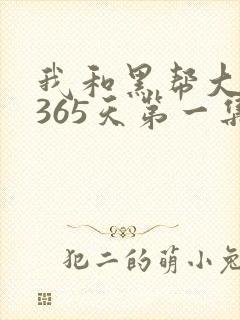 我和黑帮大
365天第一集
犯二的萌小兔